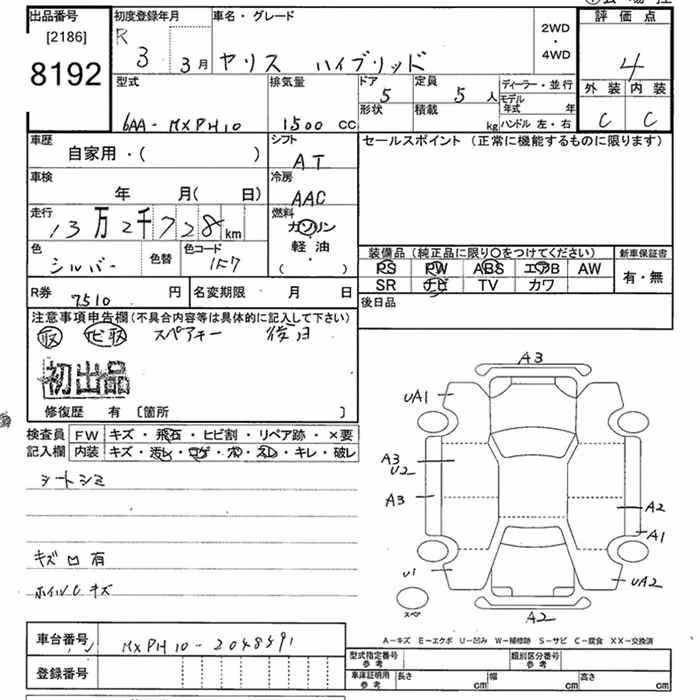 出品番号 [2186] 8192
初度登録年月 R 3 3月
車名・グレード ヤリス ハイブリッド
2WD・4WD
評価点 4
外装 内装
C C
型式 6AA-MXPH10
排気量 1500 CC
ドア 5
定員 5人
形状
積載 kg
ディーラー・並行
モデル年式 年
ハンドル 左・右
車歴 自家用・( )
シフト AT
セールスポイント（正常に機能するものに限ります）
車検 年 月( 日)
冷房 AAC
走行 13万2千728km
燃料 ガソリン 軽油・( )
色 シルバー
色替
色コード 1F7
装備品（純正品に限り〇をつけてください）
新車保証書
PS PW ABS エアB AW
有・無
SR ナビ TV カワ
R券 7510円
名変期限 月 日
後日品
注意事項申告欄(不具合内容等は具体的に記入して下さい)
取 ナビ取 スペアキー 後日
初出品
修復歴 有 [箇所 ]
検査員 FW キズ・飛石・ヒビ割・リペア跡・×要
記入欄 内装 キズ・汚レ・コゲ・穴・スレ・キレ・破レ
シートシミ
キズ凹有
ホイルCキズ
A3
UA1
A3
U2
A3
A2
A1
U1
UA2
スペア
A2
A-キズ E-エクボ U-凹み W-補修跡 S-サビ C-腐食 XX-交換済
車台番号 MXPH10-2048491
登録番号
型式指定番号 参考
類別区分番号 参考
車庫証明用 参考 長さ cm 幅 cm 高さ cm